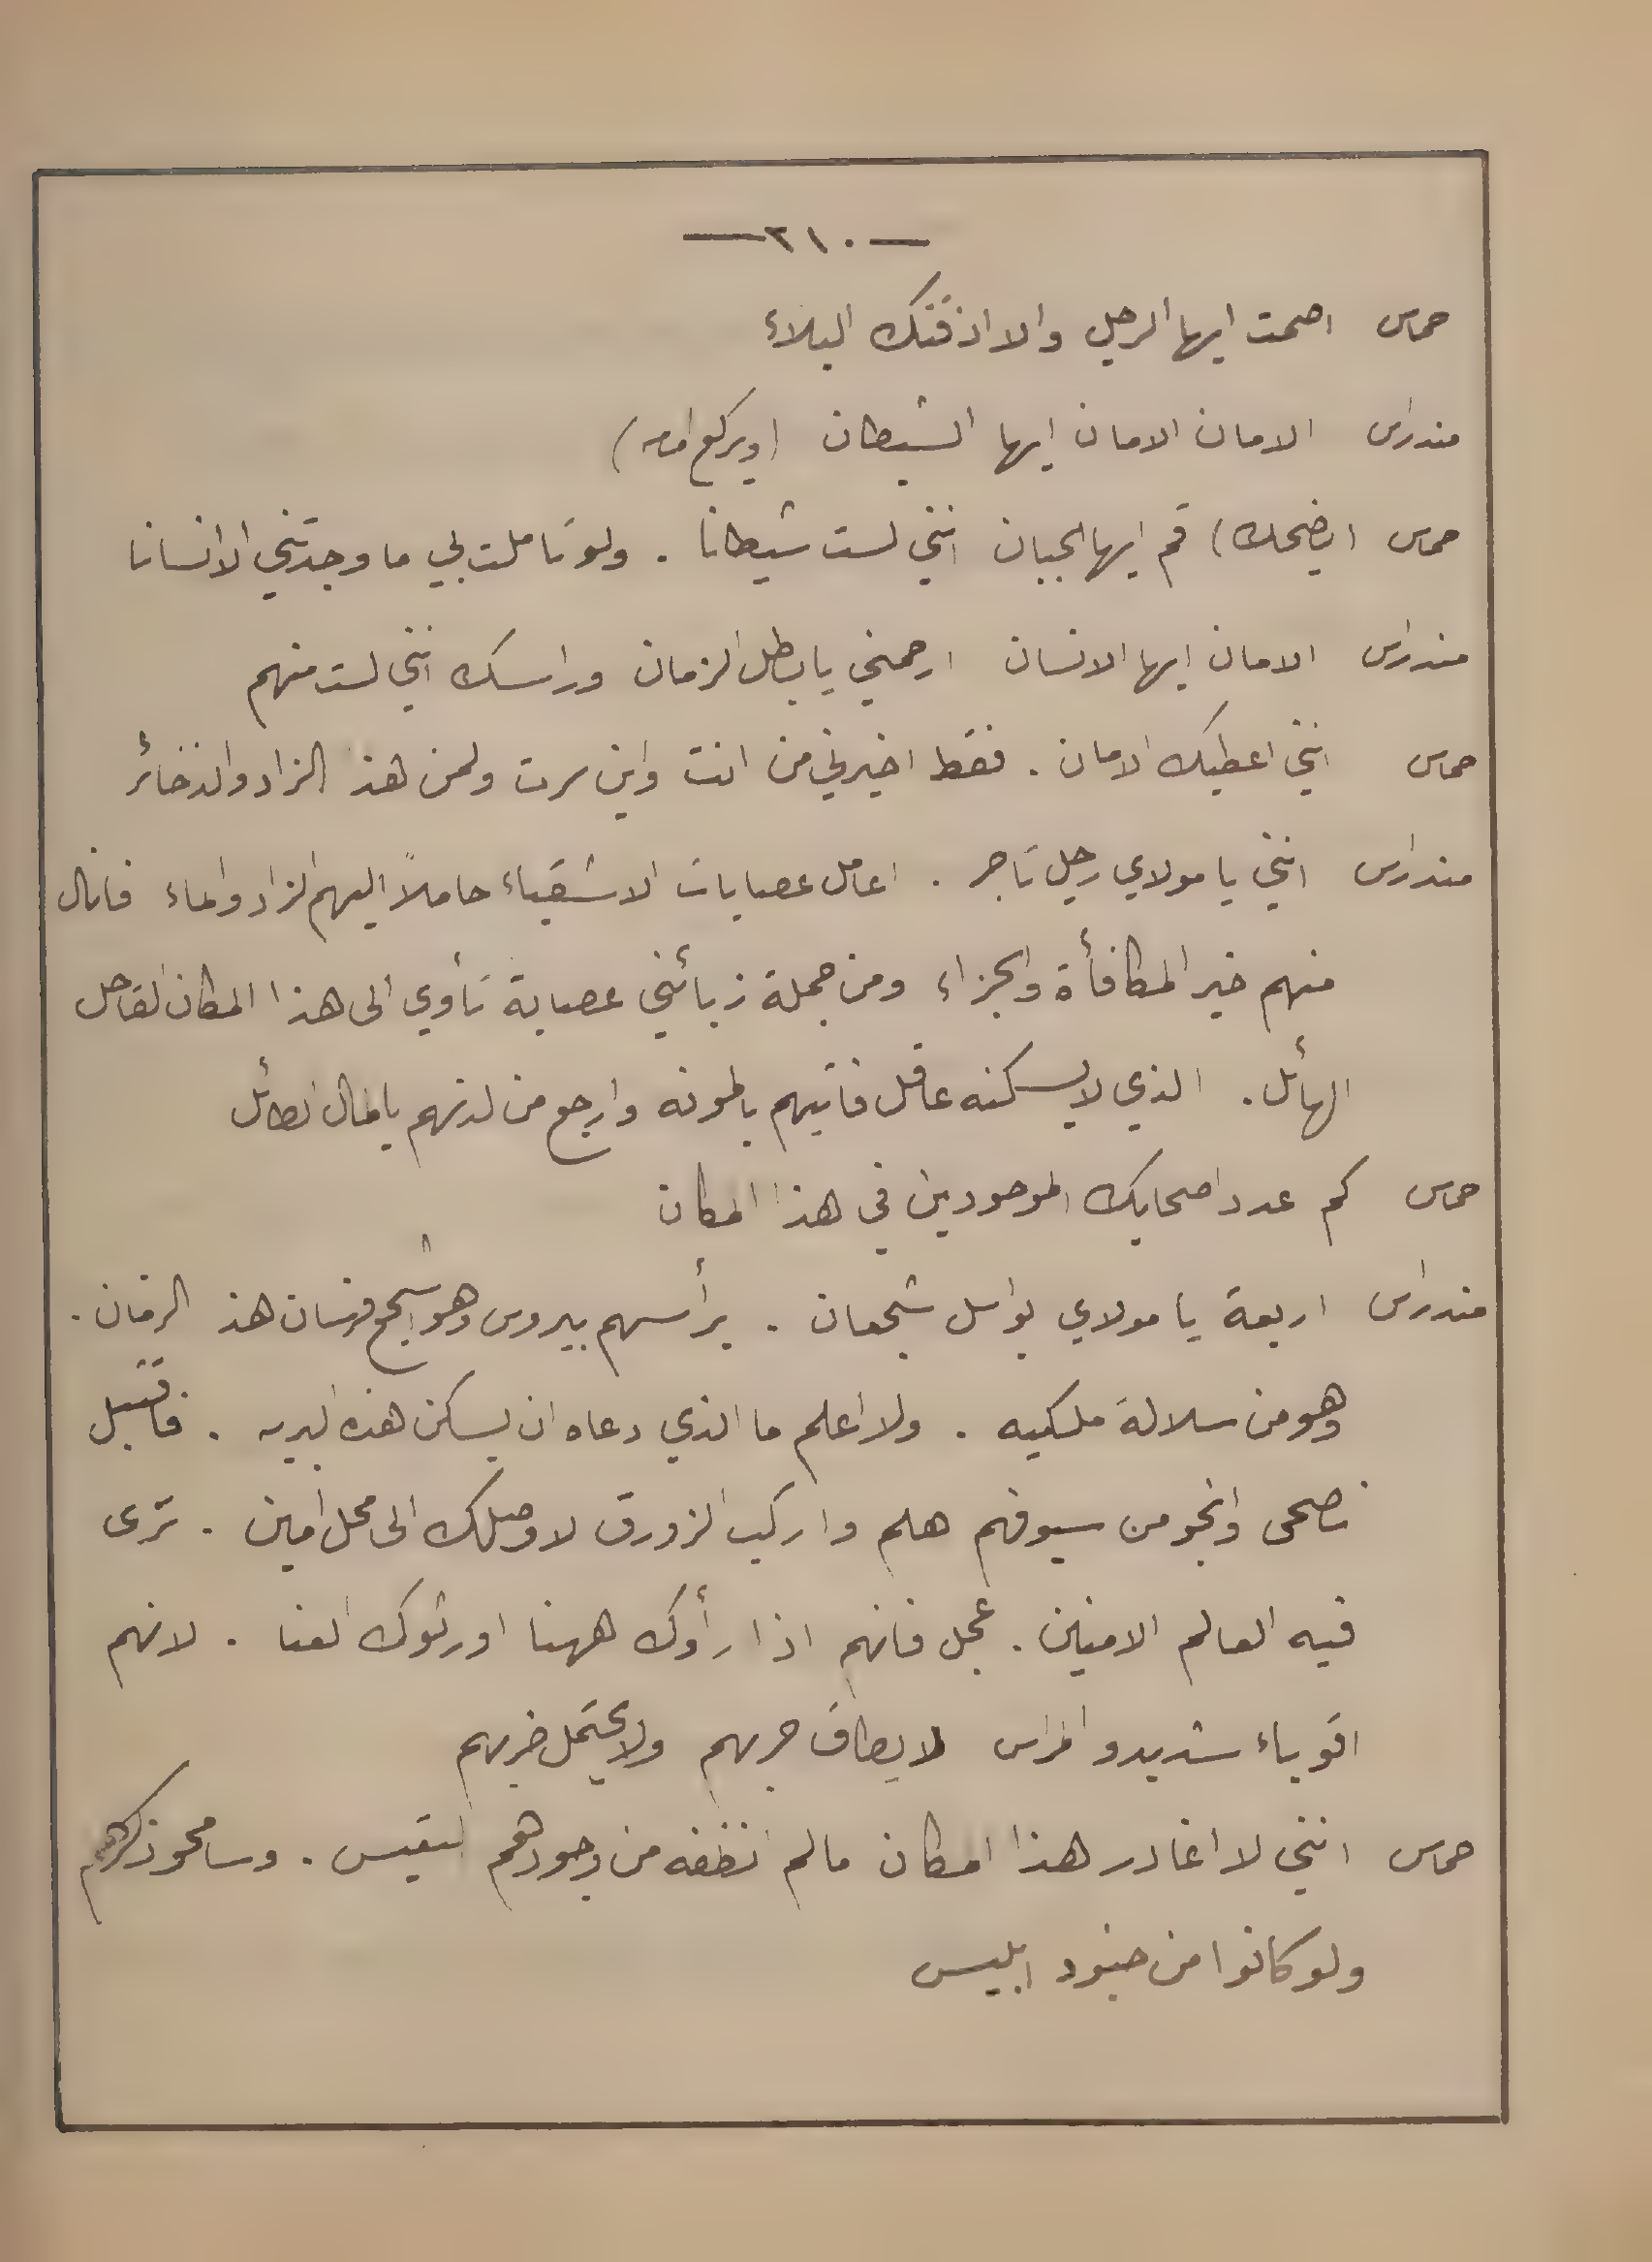 —٢١٠—
حماس اصمت ايها الرجل والا اذقتك البلاء
مندراس الامان الامان ايها الشيطان (ويركع امامه)
حماس (يضحك) قم ايها الجبان انني لست شيطانا . ولو تاملت بي ما وجدتني الا انسانا
مندراس الامان ايها الانسان ارحمني يا بطل الزمان وراسك انني لست منهم
حماس انني اعطيك الامان . فقط اخبرني من انت واين سرت ولمن هذا الزاد والذخائر
مندراس انني يا مولاي رجل تاجر . اعامل عصابات الاشقياء حاملاً اليهم الزاد والماء فانال
منهم خير المكافأة والجزاء ومن جملة زبائني عصابة تأوي الى هذا المكان القاحل
الهائل . الذي لا يسكنه عاقل فاتيهم بالمونه وارجع من لدنهم بالمال الطائل
حماس كم عدد اصحابك الموجودين في هذا المكان
مندراس اربعة يا مولاي بواسل شجعان . يرأسهم بيروس وهو اشجع فرسان هذ الزمان .
وهو من سلالة ملكيه . ولا اعلم ما الذي دعاه ان يسكن هذه البريه . فاقبل
نصحى وانجو من سيوفهم هلم واركب الزورق لاوصلك الى محل امين . ترى
فيه العالم الامنين . عجل فانهم اذا رأوك ههنا اورثوك العنا . لانهم
اقوياء شديدو المراس لا يطاق حربهم ولا يحتمل ضربهم
حماس انني لا اغادر هذا المكان مالم انظفه من وجودهم التعيس . وسامحو ذكرهم
ولو كانوا من جنود ابليس